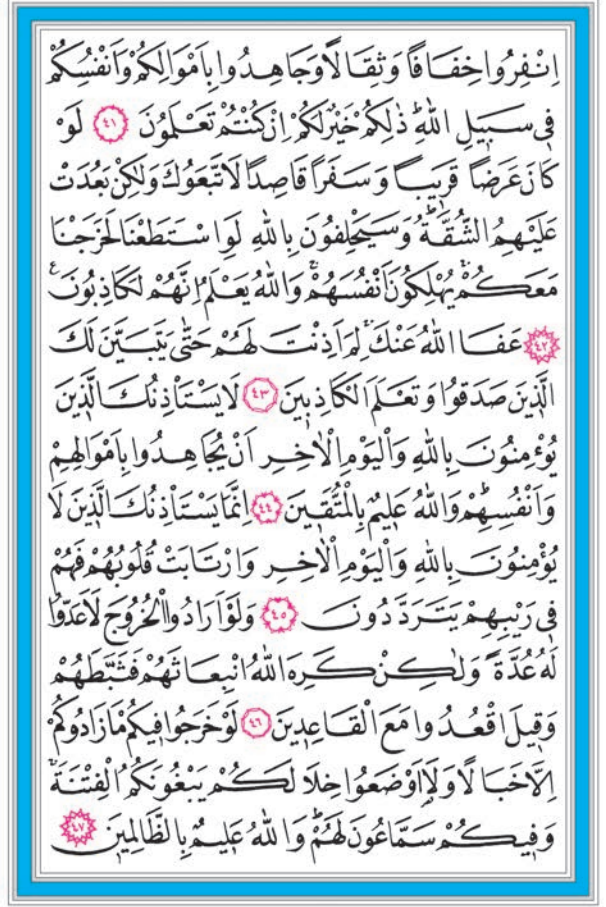 اِنْفِرُوا خِفَافًا وَثِقَالًا وَجَاهِدُوا بِاَمْوَالِكُمْ وَاَنْفُسِكُمْ
فٖي سَبٖيلِ اللّٰهِ ذٰلِكُمْ خَيْرٌ لَكُمْ اِنْ كُنْتُمْ تَعْلَمُونَ ٤١ لَوْ
كَانَ عَرَضًا قَرٖيبًا وَسَفَرًا قَاصِدًا لَاتَّبَعُوكَ وَلٰكِنْ بَعُدَتْ
عَلَيْهِمُ الشُّقَّةُ وَسَيَحْلِفُونَ بِاللّٰهِ لَوِ اسْتَطَعْنَا لَخَرَجْنَا
مَعَكُمْ يُهْلِكُونَ اَنْفُسَهُمْ وَاللّٰهُ يَعْلَمُ اِنَّهُمْ لَكَاذِبُونَ
٤٢ عَفَا اللّٰهُ عَنْكَ لِمَ اَذِنْتَ لَهُمْ حَتّٰى يَتَبَيَّنَ لَكَ
الَّذٖينَ صَدَقُوا وَتَعْلَمَ الْكَاذِبٖينَ ٤٣ لَا يَسْتَأْذِنُكَ الَّذٖينَ
يُؤْمِنُونَ بِاللّٰهِ وَالْيَوْمِ الْاٰخِرِ اَنْ يُجَاهِدُوا بِاَمْوَالِهِمْ
وَاَنْفُسِهِمْ وَاللّٰهُ عَلٖيمٌ بِالْمُتَّقٖينَ ٤٤ اِنَّمَا يَسْتَأْذِنُكَ الَّذٖينَ لَا
يُؤْمِنُونَ بِاللّٰهِ وَالْيَوْمِ الْاٰخِرِ وَارْتَابَتْ قُلُوبُهُمْ فَهُمْ
فٖي رَيْبِهِمْ يَتَرَدَّدُونَ ٤٥ وَلَوْ اَرَادُوا الْخُرُوجَ لَاَعَدُّوا
لَهُ عُدَّةً وَلٰكِنْ كَرِهَ اللّٰهُ انْبِعَاثَهُمْ فَثَبَّطَهُمْ
وَقٖيلَ اقْعُدُوا مَعَ الْقَاعِدٖينَ ٤٦ لَوْ خَرَجُوا فٖيكُمْ مَا زَادُوكُمْ
اِلَّا خَبَالًا وَلَاَوْضَعُوا خِلَالَكُمْ يَبْغُونَكُمُ الْفِتْنَةَ
وَفٖيكُمْ سَمَّاعُونَ لَهُمْ وَاللّٰهُ عَلٖيمٌ بِالظَّالِمٖينَ ٤٧